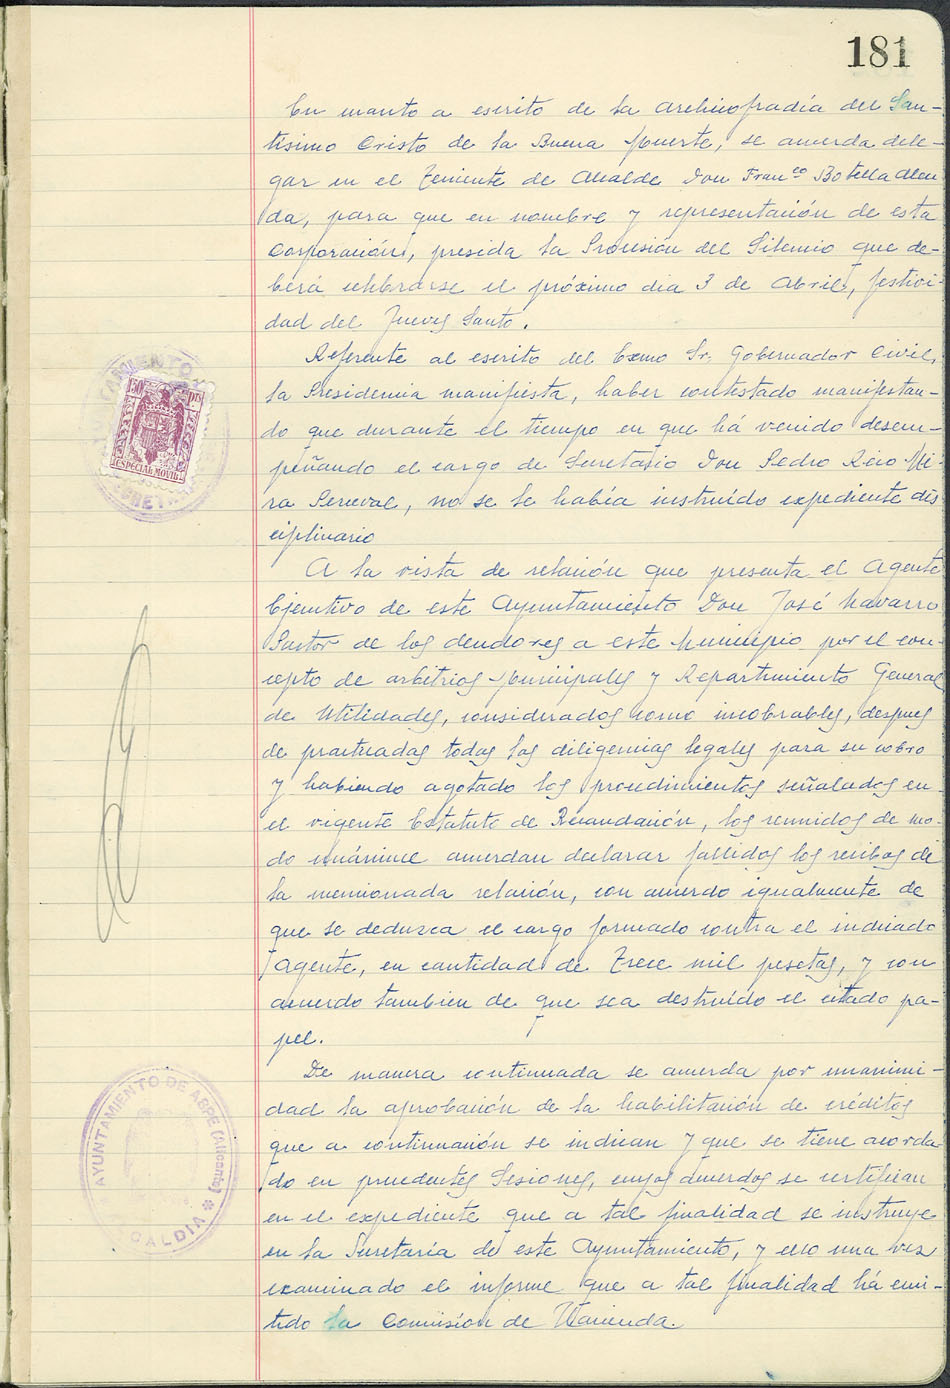 181
En cuanto a escrito de la Archicofradía del San-
tísimo Cristo de la Buena Muerte, se acuerda dele-
gar en el Teniente de Alcalde Don Franco Botella
da, para que en nombre y representación de esta
Corporación, presida la Procesión del Silencio que de-
berá celebrarse el próximo dia 3 de Abril, festivi-
dad del Jueves Santo.
Referente al escrito del Excmo Sr. Gobernador Civil,
la Presidencia manifiesta, haber contestado manifestan-
do que durante el tiempo en que há venido desem-
peñando el cargo de Secretario Don Pedro Rico Mi-
ra Perceval, no se le había instruído expediente dis
ciplinario
A la vista de relación que presenta el Agente
Ejecutivo de este Ayuntamiento Don José Navarro
Pastor de los deudores a este Municipio por el con-
cepto de arbitrios Municipales y Repartimiento General
de Utilidades, considerados como incobrables, despues
de practicadas todas las diligencias legales para su cobro
y habiendo agotado los procedimientos señalados en
el vigente Estatuto de Recaudación, los reunidos de mo-
do unánime acuerdan declarar fallidos los recibos de
la mencionada relación, con acuerdo igualmente de
que se deduzca el cargo formado contra el indicado
Agente, en cantidad de Trece mil pesetas, y con
acuerdo tambien de que sea destruído el citado pa-
pel.
De manera continuada se acuerda por unanimi-
dad la aprobación de la habilitación de créditos
que a continuación se indican y que se tiene acorda
do en precedentes Sesiones, cuyos acuerdos se certifican
en el expediente que a tal finalidad se instruye
en la Secretaría de este Ayuntamiento, y ello una vez
examinado el informe que a tal finalidad há emi-
tido la Comisión de Hacienda.
50 pts
ESPECIAL MOVIL
AYUNTAMIENTO DE ASPE (Alicante)
ALCALDIA